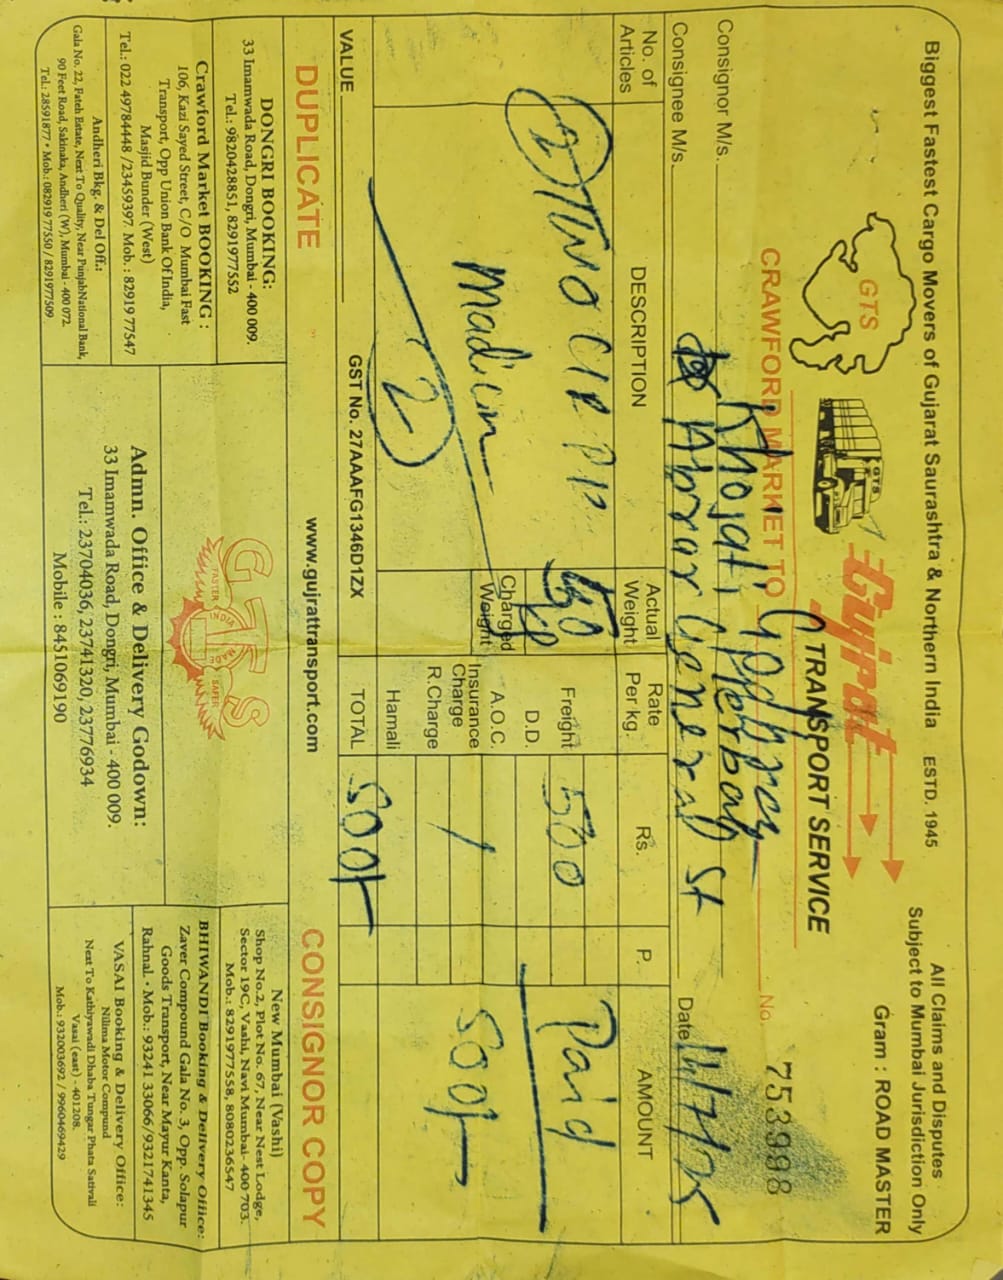 Biggest Fastest Cargo Movers of Gujarat Saurashtra & Northern India ESTD. 1945
All Claims and Disputes
Subject to Mumbai Jurisdiction Only
Gram : ROAD MASTER
GTS
GTS
Gujrat
TRANSPORT SERVICE
CRAWFORD MARKET TO Godhra
No. 753998
Consignor M/s.
Consignee M/s. Abrar General St
Date 14/7/25
No. of Articles
DESCRIPTION
Actual Weight
Rate Per kg.
Rs.
P.
AMOUNT
2 TWO
Madicin
2
Charged Weight
Freight 500
D.D.
A.O.C.
Insurance Charge
R.Charge
Hamali
TOTAL 500/-
Paid
500/-
VALUE
GST No. 27AAAFG1346D1ZX
DUPLICATE
www.gujrattransport.com
CONSIGNOR COPY
DONGRI BOOKING:
33 Imamwada Road, Dongri, Mumbai - 400 009.
Tel.: 9820428851, 8291977552
Crawford Market BOOKING :
106, Kazi Sayed Street, C/O. Mumbai Fast
Transport, Opp Union Bank Of India,
Masjid Bunder (West)
Tel.: 022 49784448 /23459397. Mob. : 82919 77547
Andheri Bkg. & Del Off.:
Gala No. 22, Fateh Estate, Next To Quality, Near PunjabNational Bank,
90 Feet Road, Sakinaka, Andheri (W), Mumbai - 400 072.
Tel.: 28591877 • Mob.: 082919 77550 / 8291977509
GTS
FASTER
INDIA
SAFER
Admn. Office & Delivery Godown:
33 Imamwada Road, Dongri, Mumbai - 400 009.
Tel.: 23704036, 23741320, 23776934
Mobile : 8451069190
New Mumbai (Vashi)
Shop No.2, Plot No. 67, Near Nest Lodge,
Sector 19C, Vashi, Navi Mumbai- 400 703.
Mob.: 8291977558, 8080236547
BHIWANDI Booking & Delivery Office:
Zaver Compound Gala No. 3, Opp. Solapur
Goods Transport, Near Mayur Kanta,
Rahnal. • Mob.: 93241 33066/9321741345
VASAI Booking & Delivery Office:
Nilima Motor Compund
Next To Kathiyawadi Dhaba Tungar Phata Sativali
Vasai (east) - 401208.
Mob.: 932003692 / 9960469429